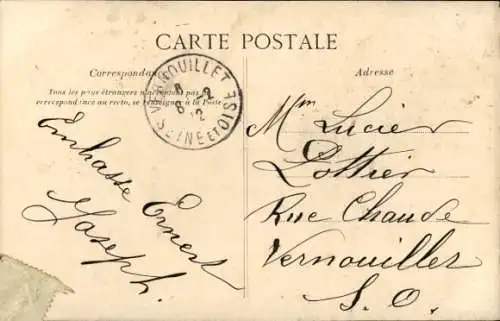 CARTE POSTALE
Correspondance
Tous les pays étrangers n'acceptent pas de
correspondance au recto, se renseigner à la Poste
Adresse
RAMBOUILLET
SEINE ET OISE
Embasse Ernest
Joseph.
Mm Lucier
Lottier
Rue Chaude
Vernouiller
S. O.